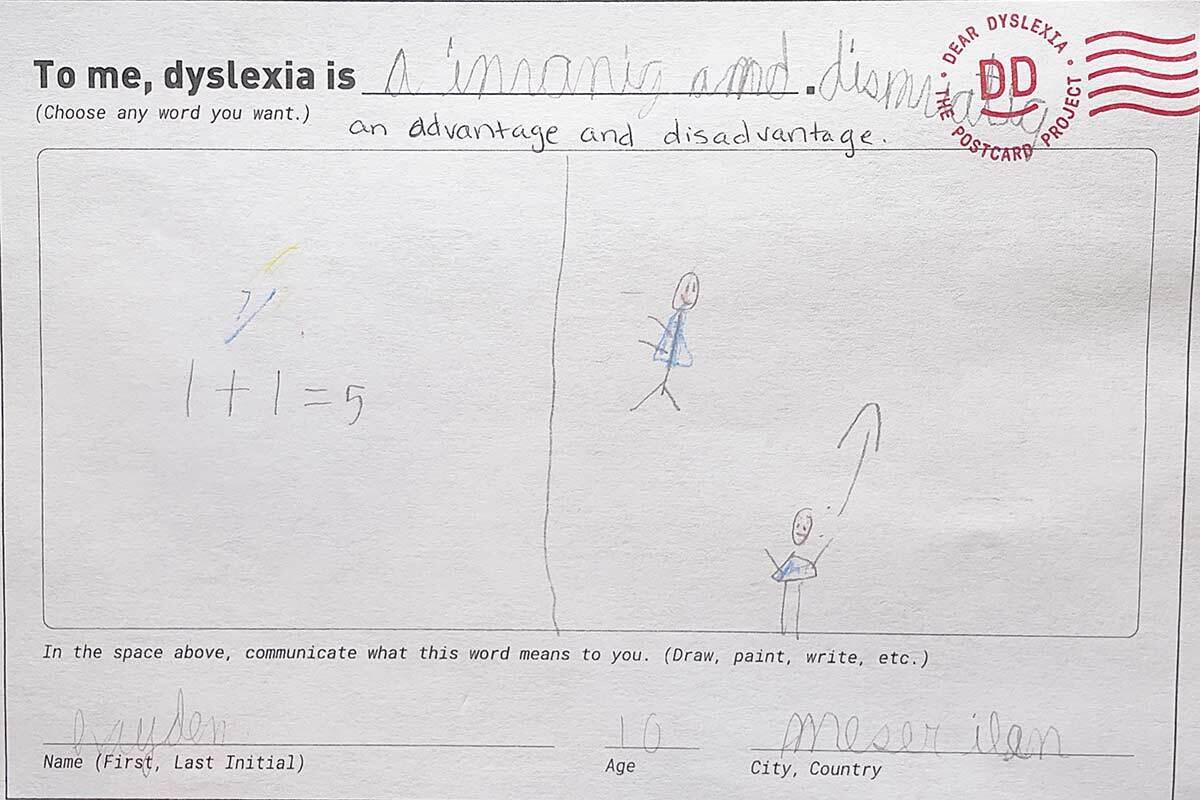 To me, dyslexia is a inranig and . dismratig
(Choose any word you want.)
an advantage and disadvantage.
DEAR DYSLEXIA
DD
THE POSTCARD PROJECT
1 + 1 = 5
In the space above, communicate what this word means to you. (Draw, paint, write, etc.)
10
Name (First, Last Initial) Age City, Country